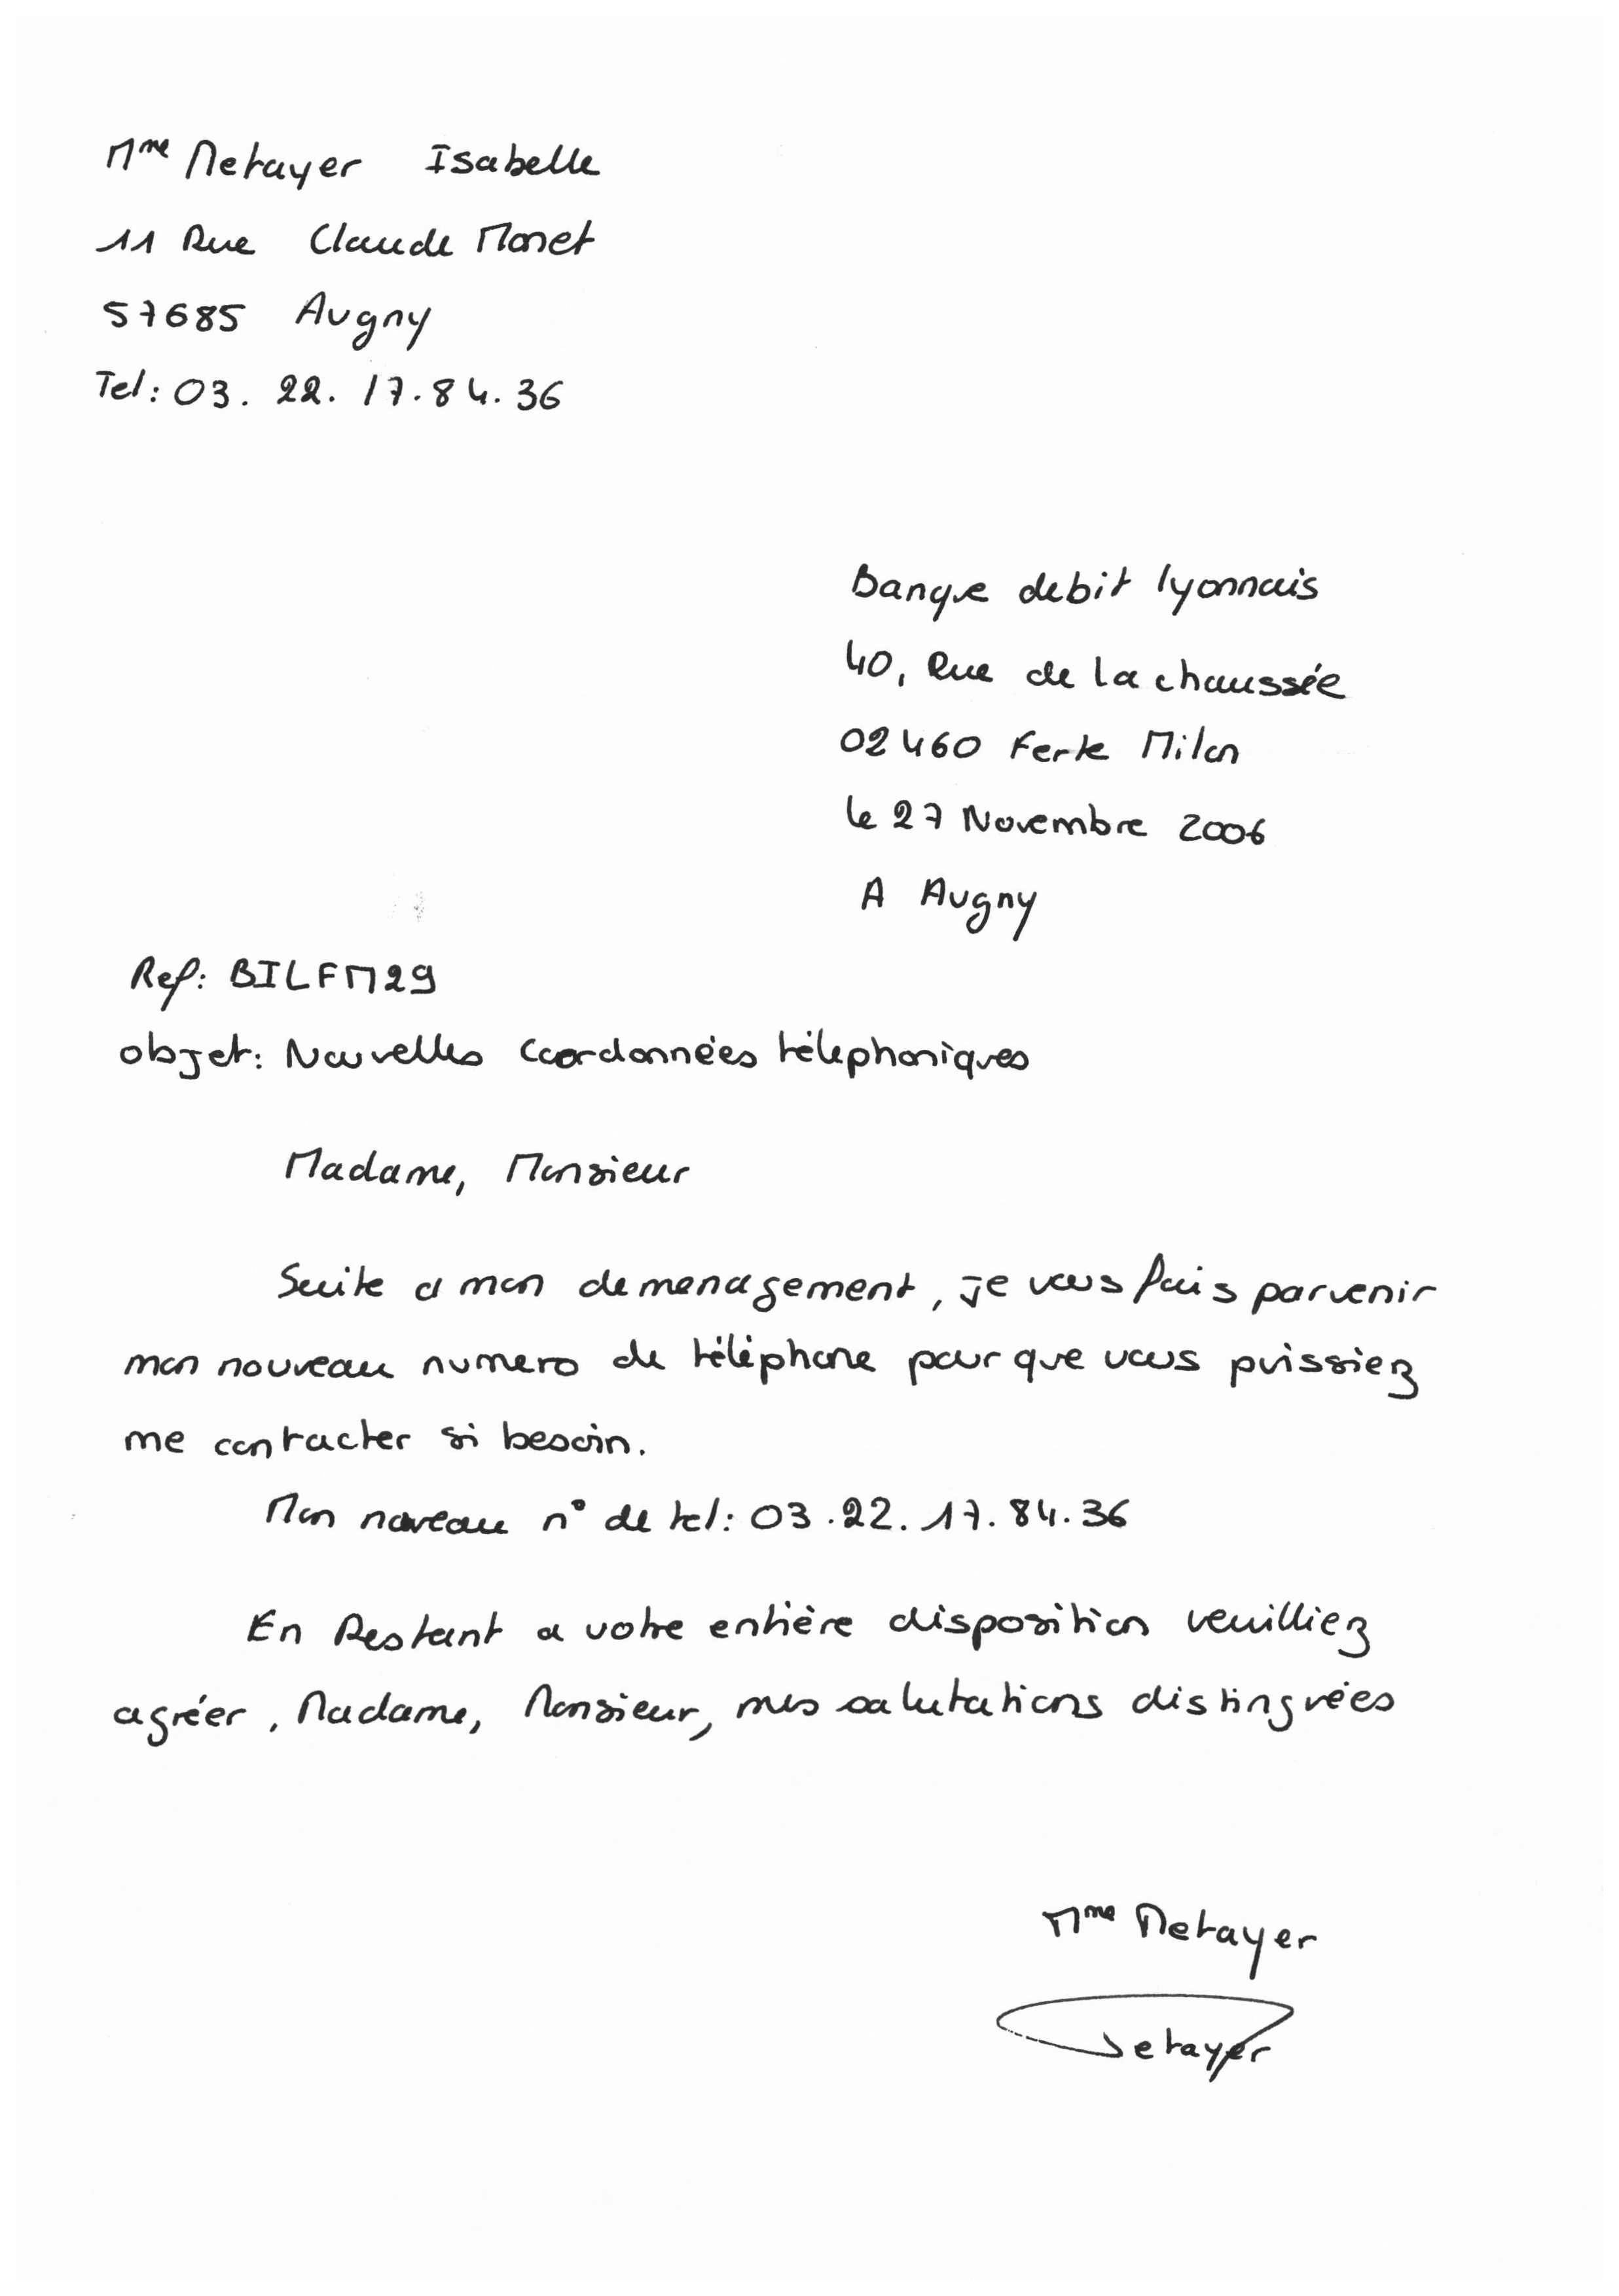 Mme Metayer Isabelle
11 Rue Claude Monet
57685 Augny
Tel: 03. 22. 17. 84. 36
Banque debit lyonnais
40, Rue de la chaussée
02460 Ferte Milon
le 27 Novembre 2006
A Augny
Ref: BILFM29
objet: Nouvelles Coordonnées téléphoniques
Madame, Monsieur
Suite a mon demenagement, je vous fais parvenir
mon nouveau numero de téléphone pour que vous puissiez
me contacter si besoin.
Mon nouveau n° de tel: 03.22.17.84.36
En Restant a votre entière disposition veuilliez
agréer, Madame, Monsieur, mes salutations distinguées
Mme Metayer
Metayer